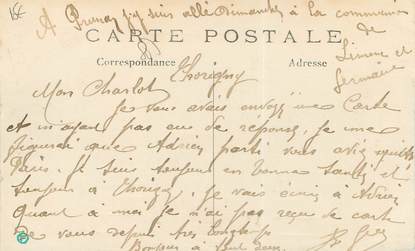 A Prunay j'y suis allé Dimanche à la communion
de
Simone et
Germaine
CARTE POSTALE
Correspondance
Adresse
Thorigny
Mon Charlot
Je vous avais envoyé une Carte
et n'ayant pas eu de réponse, je me
figurais que Adrien parti vous aviez quitté
Paris. Je suis toujours en bonne santé et
toujours à Thorigny. Je vais écrire à Adrien
Quant à moi je n'ai pas reçu de carte
de vous depuis très longtemps
Bonjour à tout deux